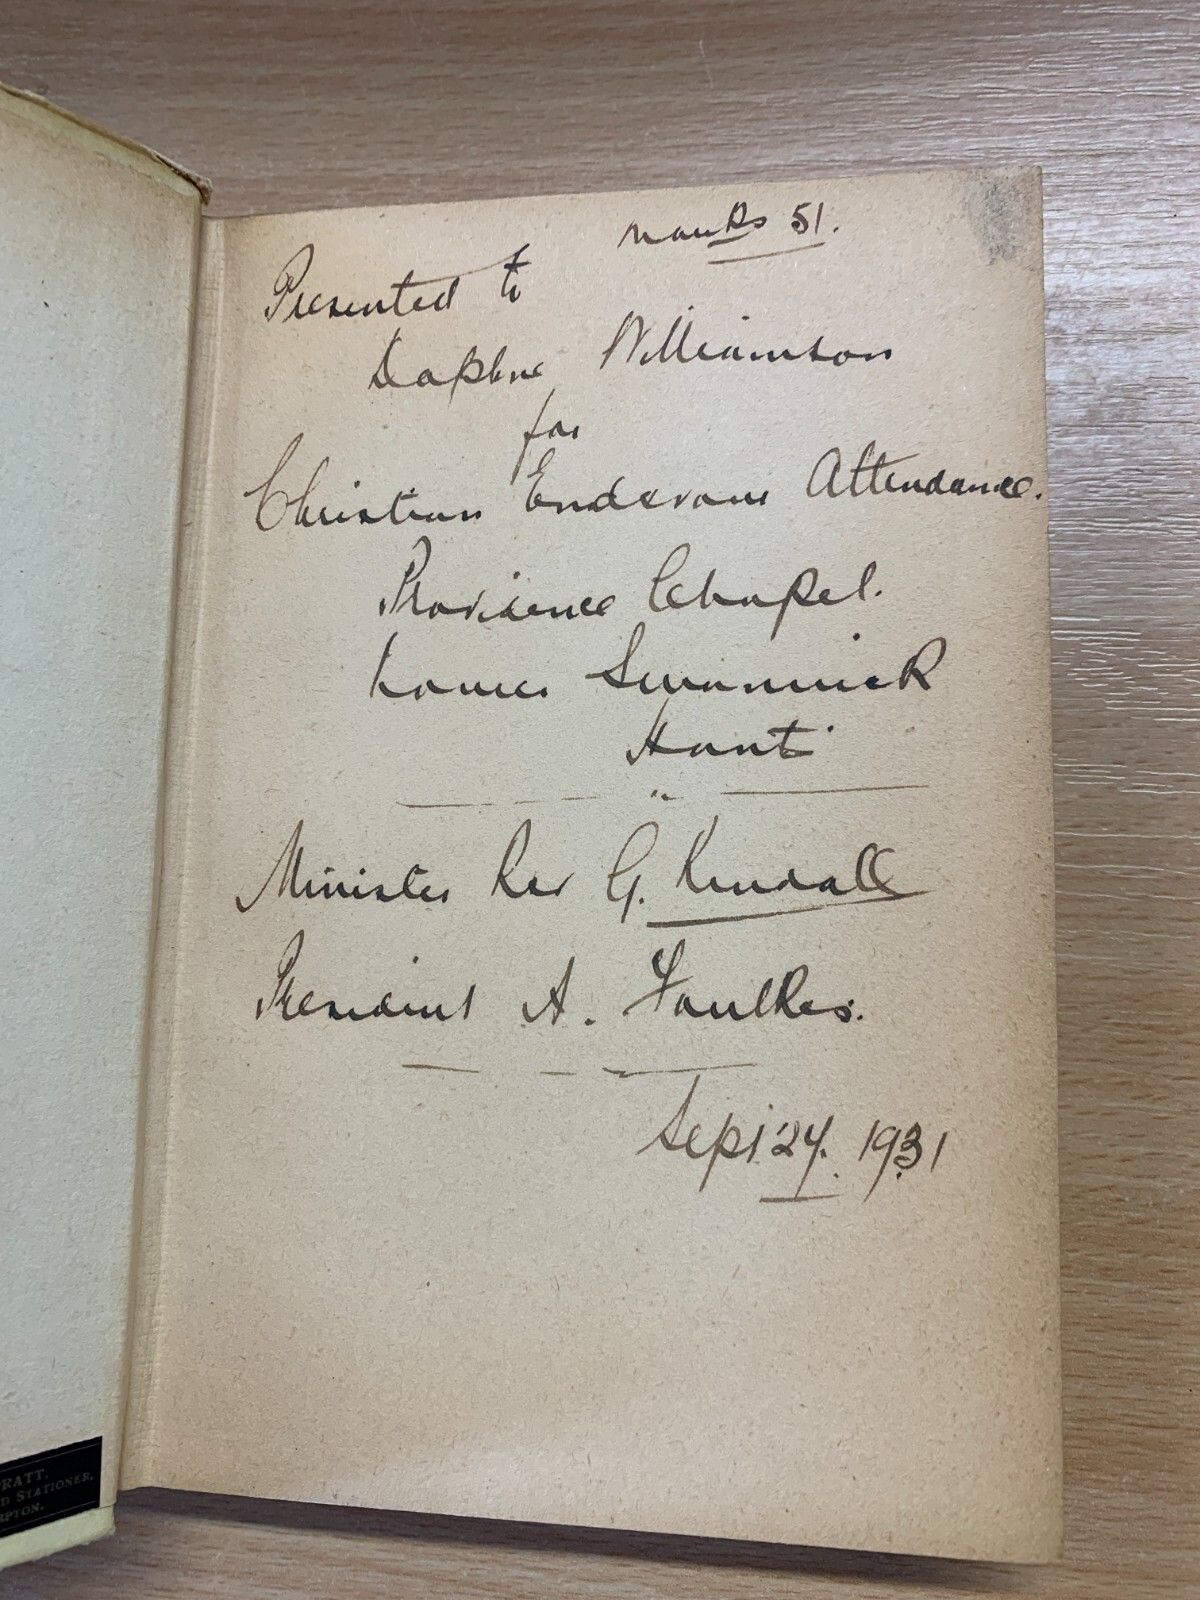 Marks 51.
Presented to
Daphne Williamson
for
Christian Endevour Attendance.
Providence Chapel.
Lower Swanwick
Hant
Minister Rev G. Kendall
President A. Faulkes.
Sept 24. 1931
PRATT,
D STATIONER,
PTON.